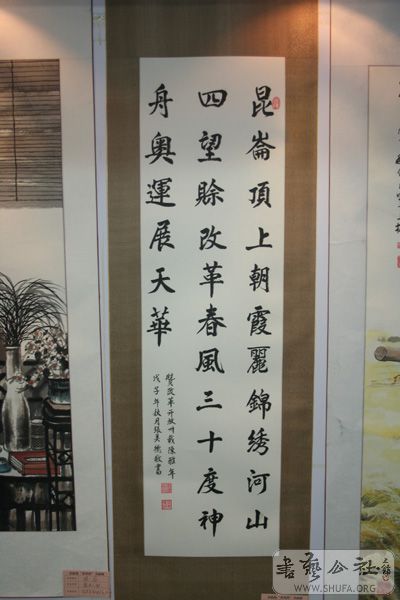 昆崙頂上朝霞麗錦綉河山
四望賒改革春風三十度神
舟奥運展天華
贊改革开放卅載陳雅年
戊子年秋月張美榆敬書
書藝公社
WWW.SHUFA.ORG